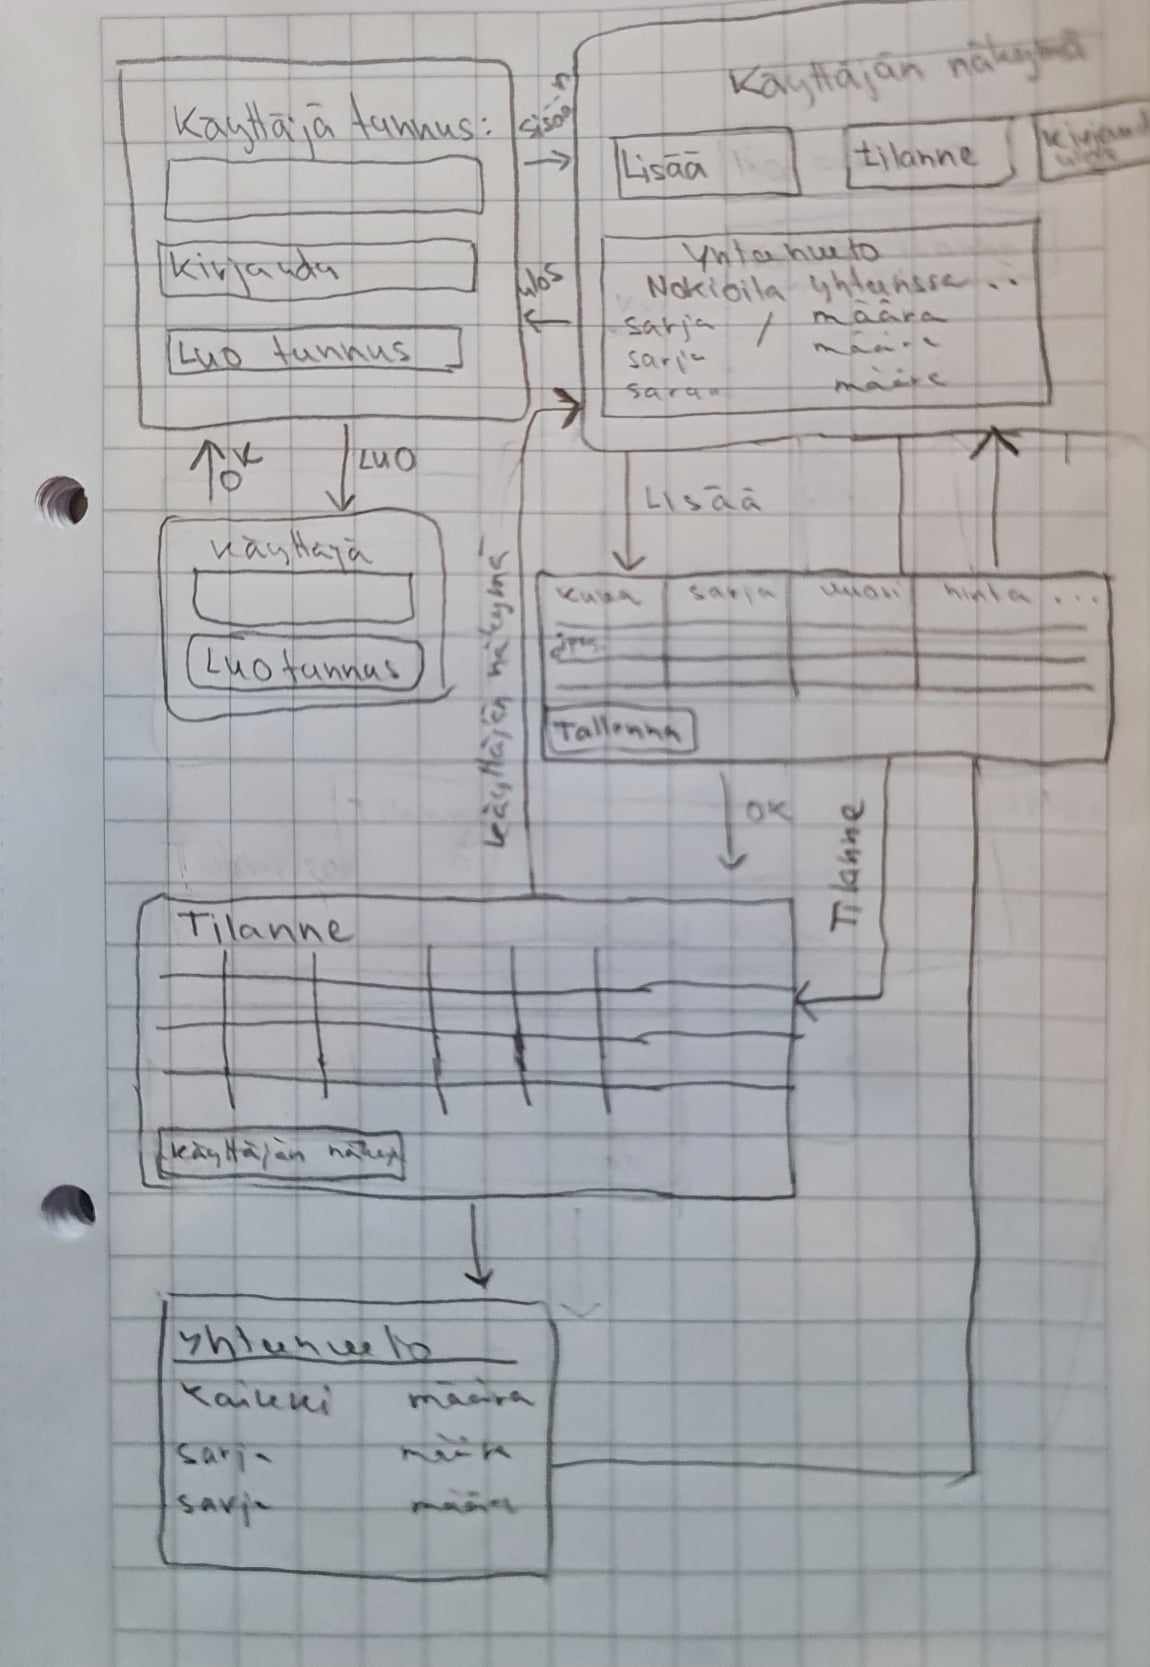 Käyttäjä tunnus:
Kirjaudu
Luo tunnus
sisään
ulos
Käyttäjän näkymä
Lisää
tilanne
Kirjaudu
ulos
Yhteenveto
Nokioita yhteensä ...
sarja / määrä
sarja määrä
sarja määrä
OK
LUO
Käyttäjä
Luo tunnus
Lisää
kuva sarja vuosi hinta ...
Tallenna
käyttäjän näkymä
OK
Tilanne
Tilanne
käyttäjän näkym
Yhteenveto
Kaikki määrä
sarja määrä
sarja määrä